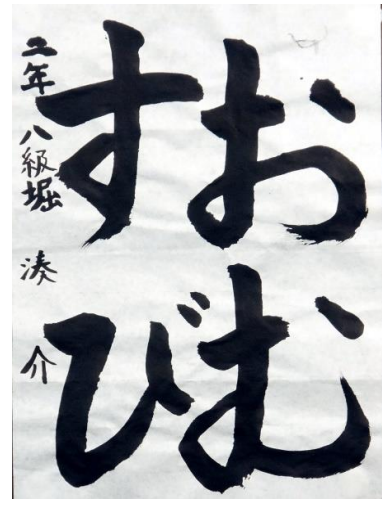 おむ
すび
年 八級 堀 湊 介